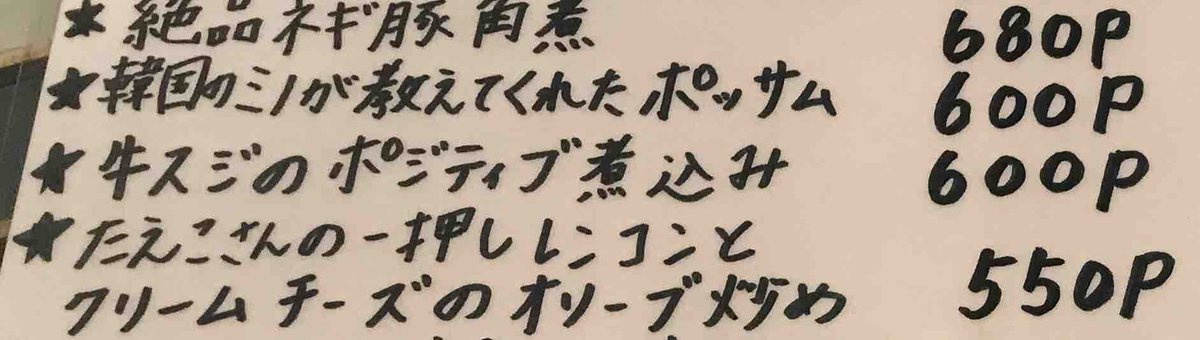 ★絶品ネギ豚角煮 680P
★韓国のミノが教えてくれたポッサム 600P
★牛スジのポジティブ煮込み 600P
★たえこさんの一押しレンコンと
クリームチーズのオリーブ炒め 550P